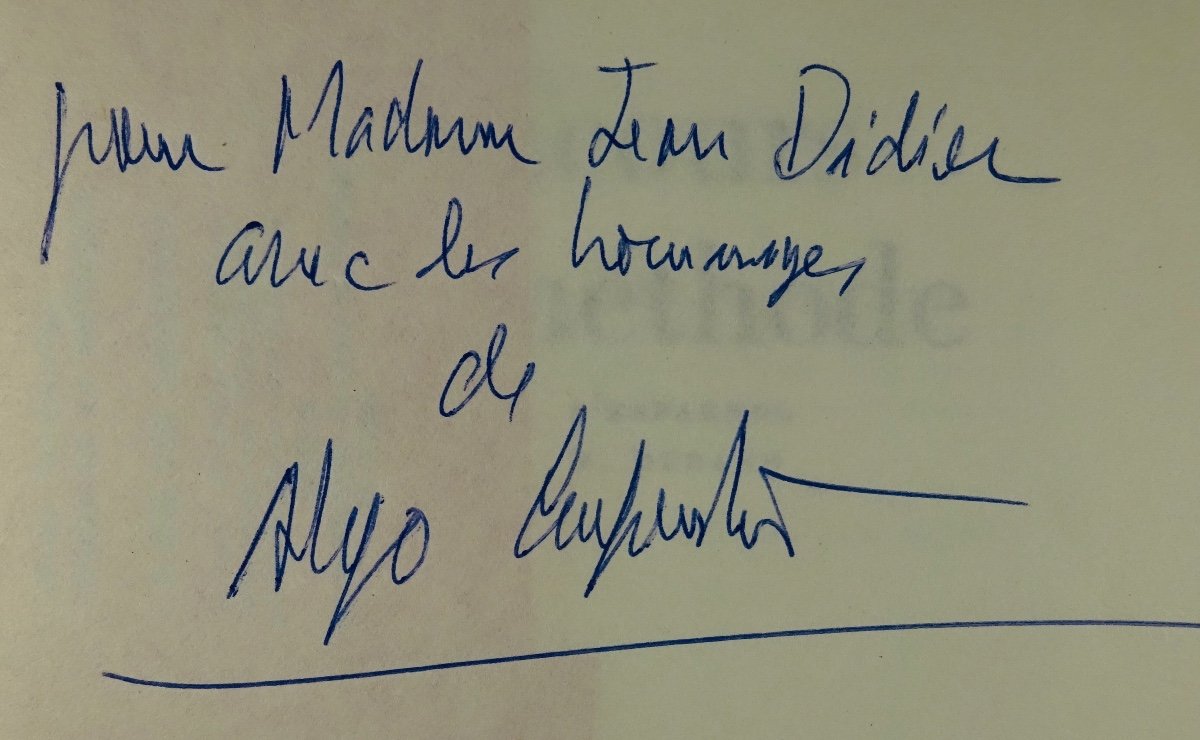 pour Madame Jean Didier
avec les hommages
méthode
de
Alejo Carpentier